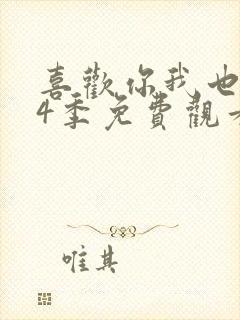 喜歡你我也
4季免費觀
唯其